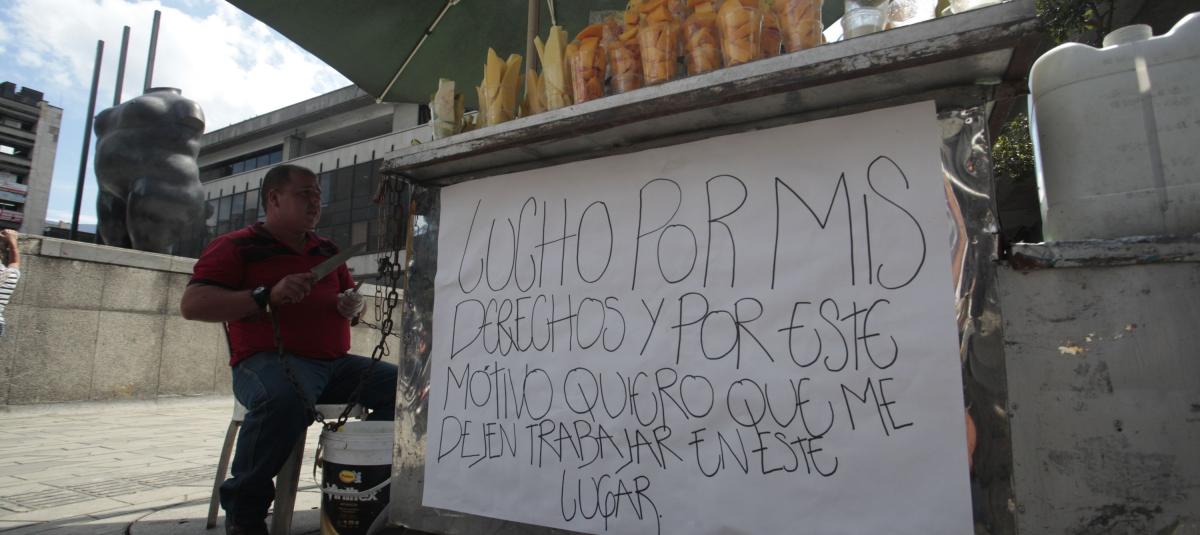 LUCHO POR MIS
DERECHOS Y POR ESTE
MÓTIVO QUIERO QUE ME
DEJEN TRABAJAR EN ESTE
LUGAR.
Viniltex